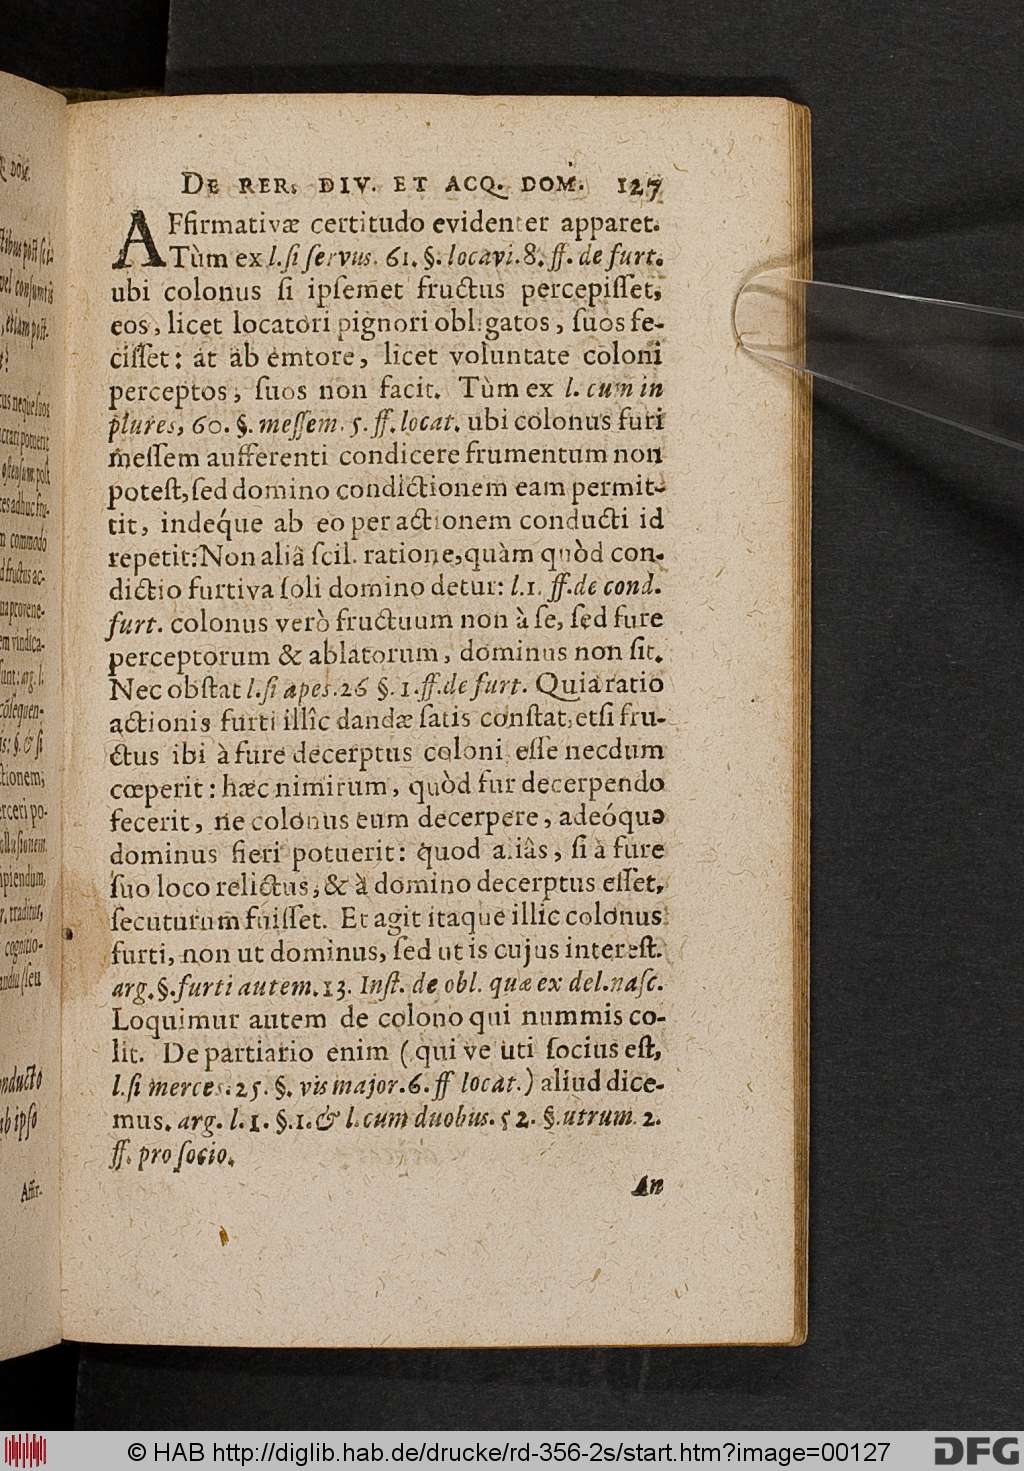 DE RER. DIV. ET ACQ. DOM. 127
AFfirmativæ certitudo evidenter apparet.
Tùm ex l. ſi ſervus. 61. §. locavi. 8. ff. de furt.
ubi colonus ſi ipſemet fructus percepiſſet,
eos, licet locatori pignori obligatos, ſuos fe-
ciſſet: at ab emtore, licet voluntate coloni
perceptos, ſuos non facit. Tùm ex l. cum in
plures, 60. §. meſſem. 5. ff. locat. ubi colonus furi
meſſem aufferenti condicere frumentum non
poteſt, ſed domino condictionem eam permit-
tit, indeq́ue ab eo per actionem conducti id
repetit: Non aliâ ſcil. ratione, quàm quòd con-
dictio furtiva ſoli domino detur: l. 1. ff. de cond.
furt. colonus verò fructuum non à ſe, ſed fure
perceptorum & ablatorum, dominus non ſit.
Nec obſtat l. ſi apes. 26 §. 1. ff. de furt. Quia ratio
actionis furti illîc dandæ ſatis conſtat, etſi fru-
ctus ibi à fure decerptus coloni eſſe necdum
cœperit: hæc nimirum, quòd fur decerpendo
fecerit, ne colonus eum decerpere, adeóque
dominus fieri potuerit: quod aliâs, ſi à fure
ſuo loco relictus, & à domino decerptus eſſet,
ſecuturum fuiſſet. Et agit itaque illic colonus
furti, non ut dominus, ſed ut is cujus intereſt.
arg. §. furti autem. 13. Inſt. de obl. quæ ex del. naſc.
Loquimur autem de colono qui nummis co-
lit. De partiario enim (qui ve uti ſocius eſt,
l. ſi merces. 25. §. vis major. 6. ff locat.) aliud dice-
mus. arg. l. 1. §. 1. & l. cum duobus. 52. §. utrum. 2.
ff. pro ſocio.
An
© HAB http://diglib.hab.de/drucke/rd-356-2s/start.htm?image=00127
DFG